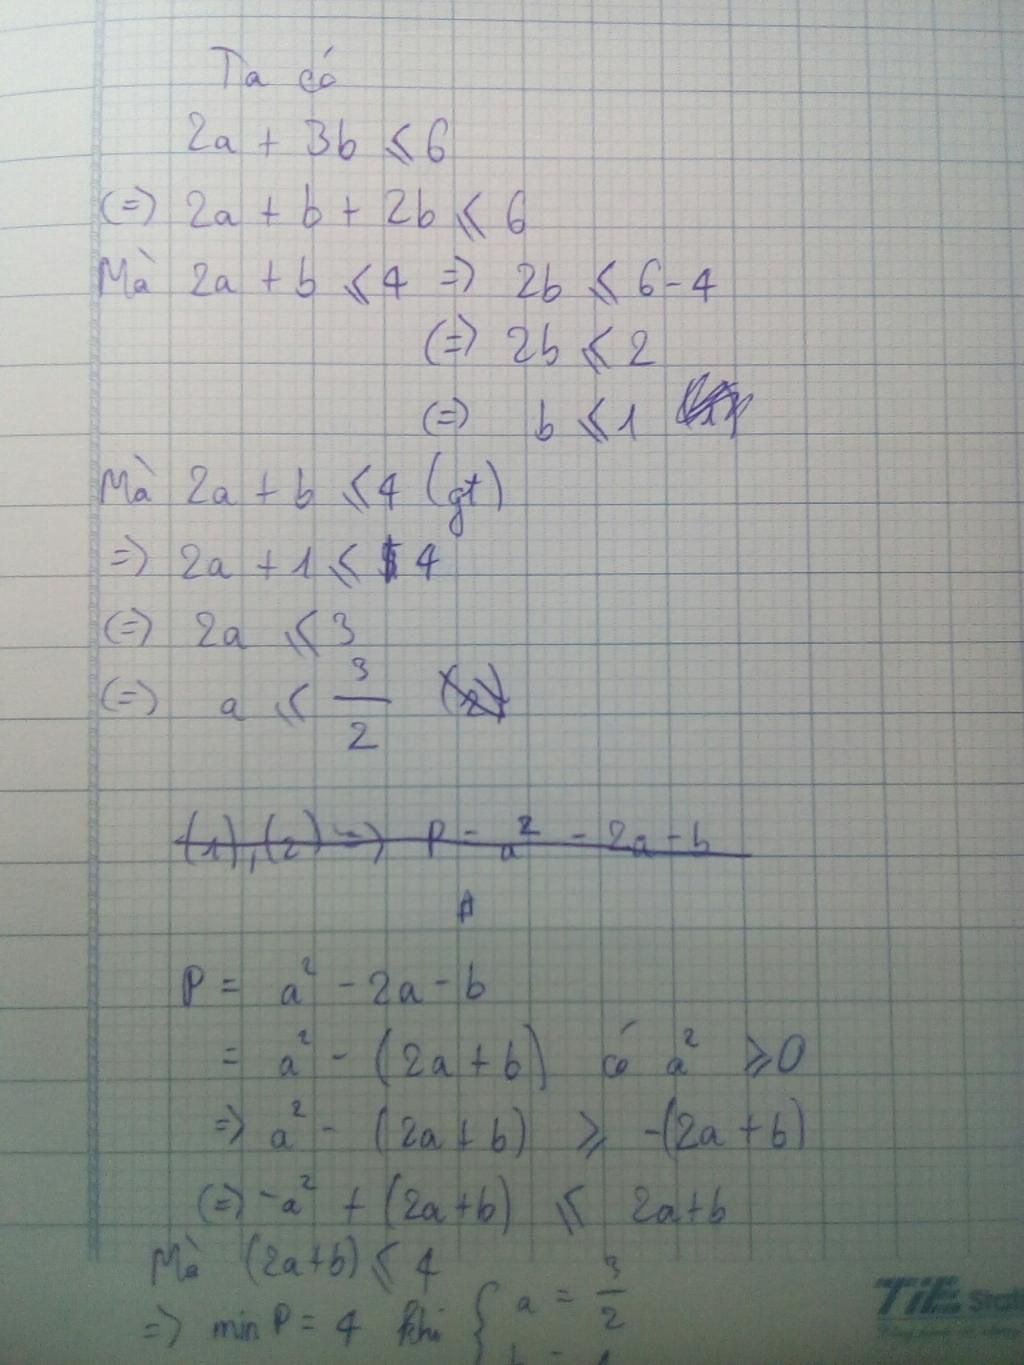 Ta có
2a + 3b ⩽ 6
(=) 2a + b + 2b ⩽ 6
Mà 2a + b ⩽ 4 =) 2b ⩽ 6 - 4
(=) 2b ⩽ 2
(=) b ⩽ 1
Mà 2a + b ⩽ 4 (gt)
=) 2a + 1 ⩽ 4
(=) 2a ⩽ 3
(=) a ⩽ 3/2 (2)
(1), (2) =) P = a² - 2a - b
A
P = a² - 2a - b
= a² - (2a + b) có a² ⩾ 0
=) a² - (2a + b) ⩾ -(2a + b)
(=) -a² + (2a+b) ⩽ 2a+b
Mà (2a+b) ⩽ 4
=) min P = 4 khi { a = 3/2
TiE